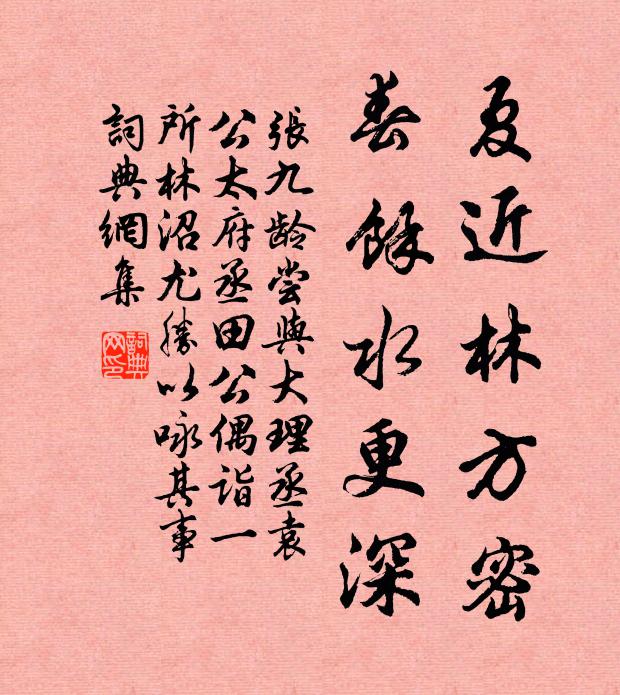 夏近林方密
春餘水更深
張九齡嘗與大理丞袁
公太府丞田公偶詣一
所林沼尤勝以詠其事
詞典網集
詞典
网印